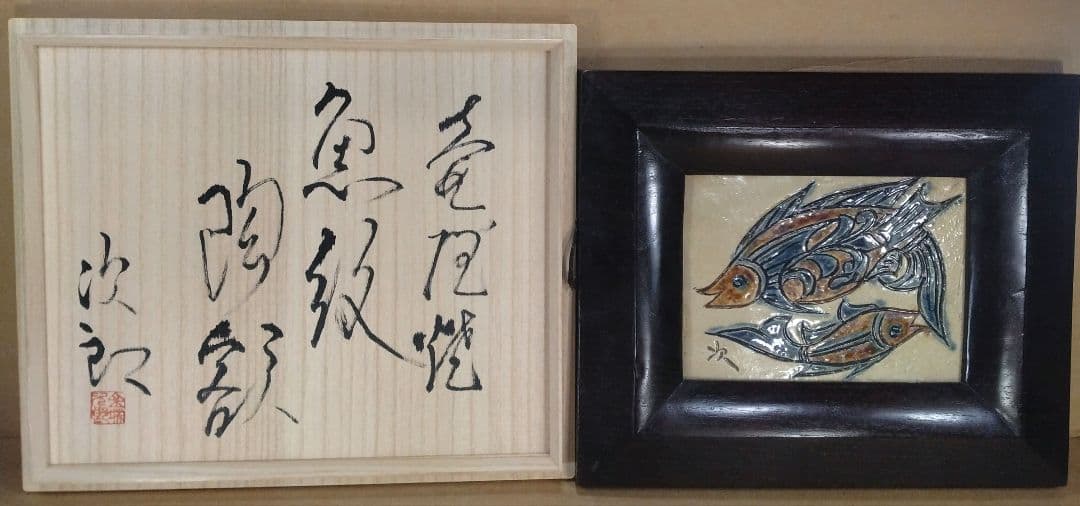 壺屋焼
魚紋
陶額
次郎
次